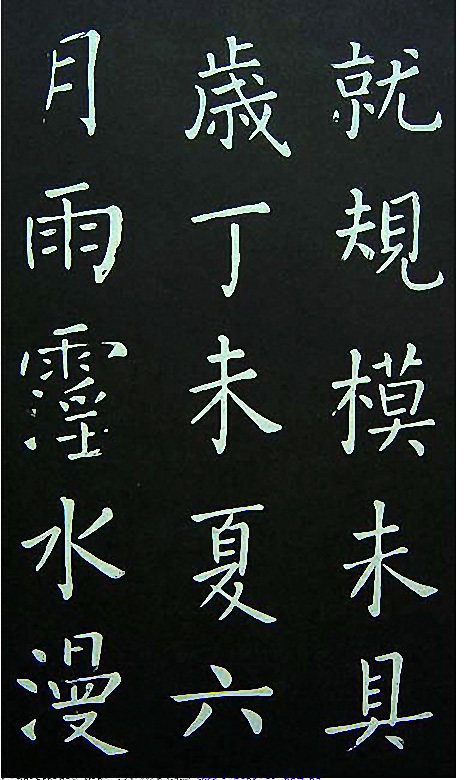 就規模未具
歳丁未夏六
月雨霪水漫